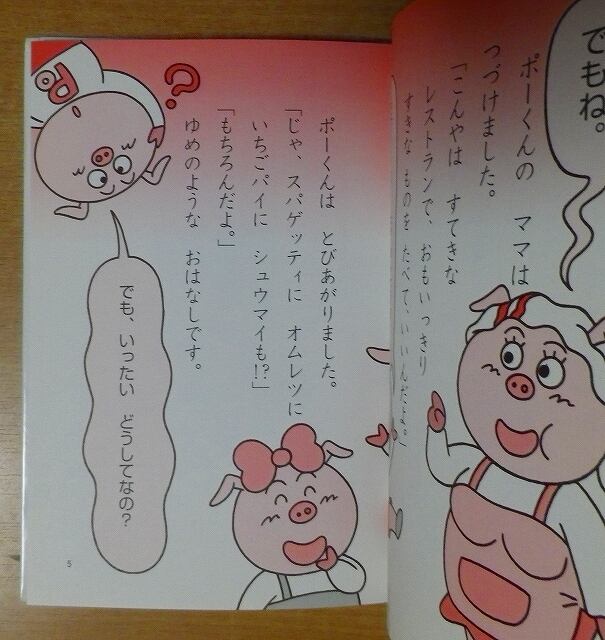 でもね。
ポーくんの ママは
つづけました。
「こんやは すてきな
レストランで、おもいっきり
すきな ものを たべて、いいんだよ。
ポーくんは とびあがりました。
「じゃ、スパゲッティに オムレツに
いちごパイに シュウマイも!?」
「もちろんだよ。」
ゆめのような おはなしです。
?
でも、いったい どうしてなの?
5